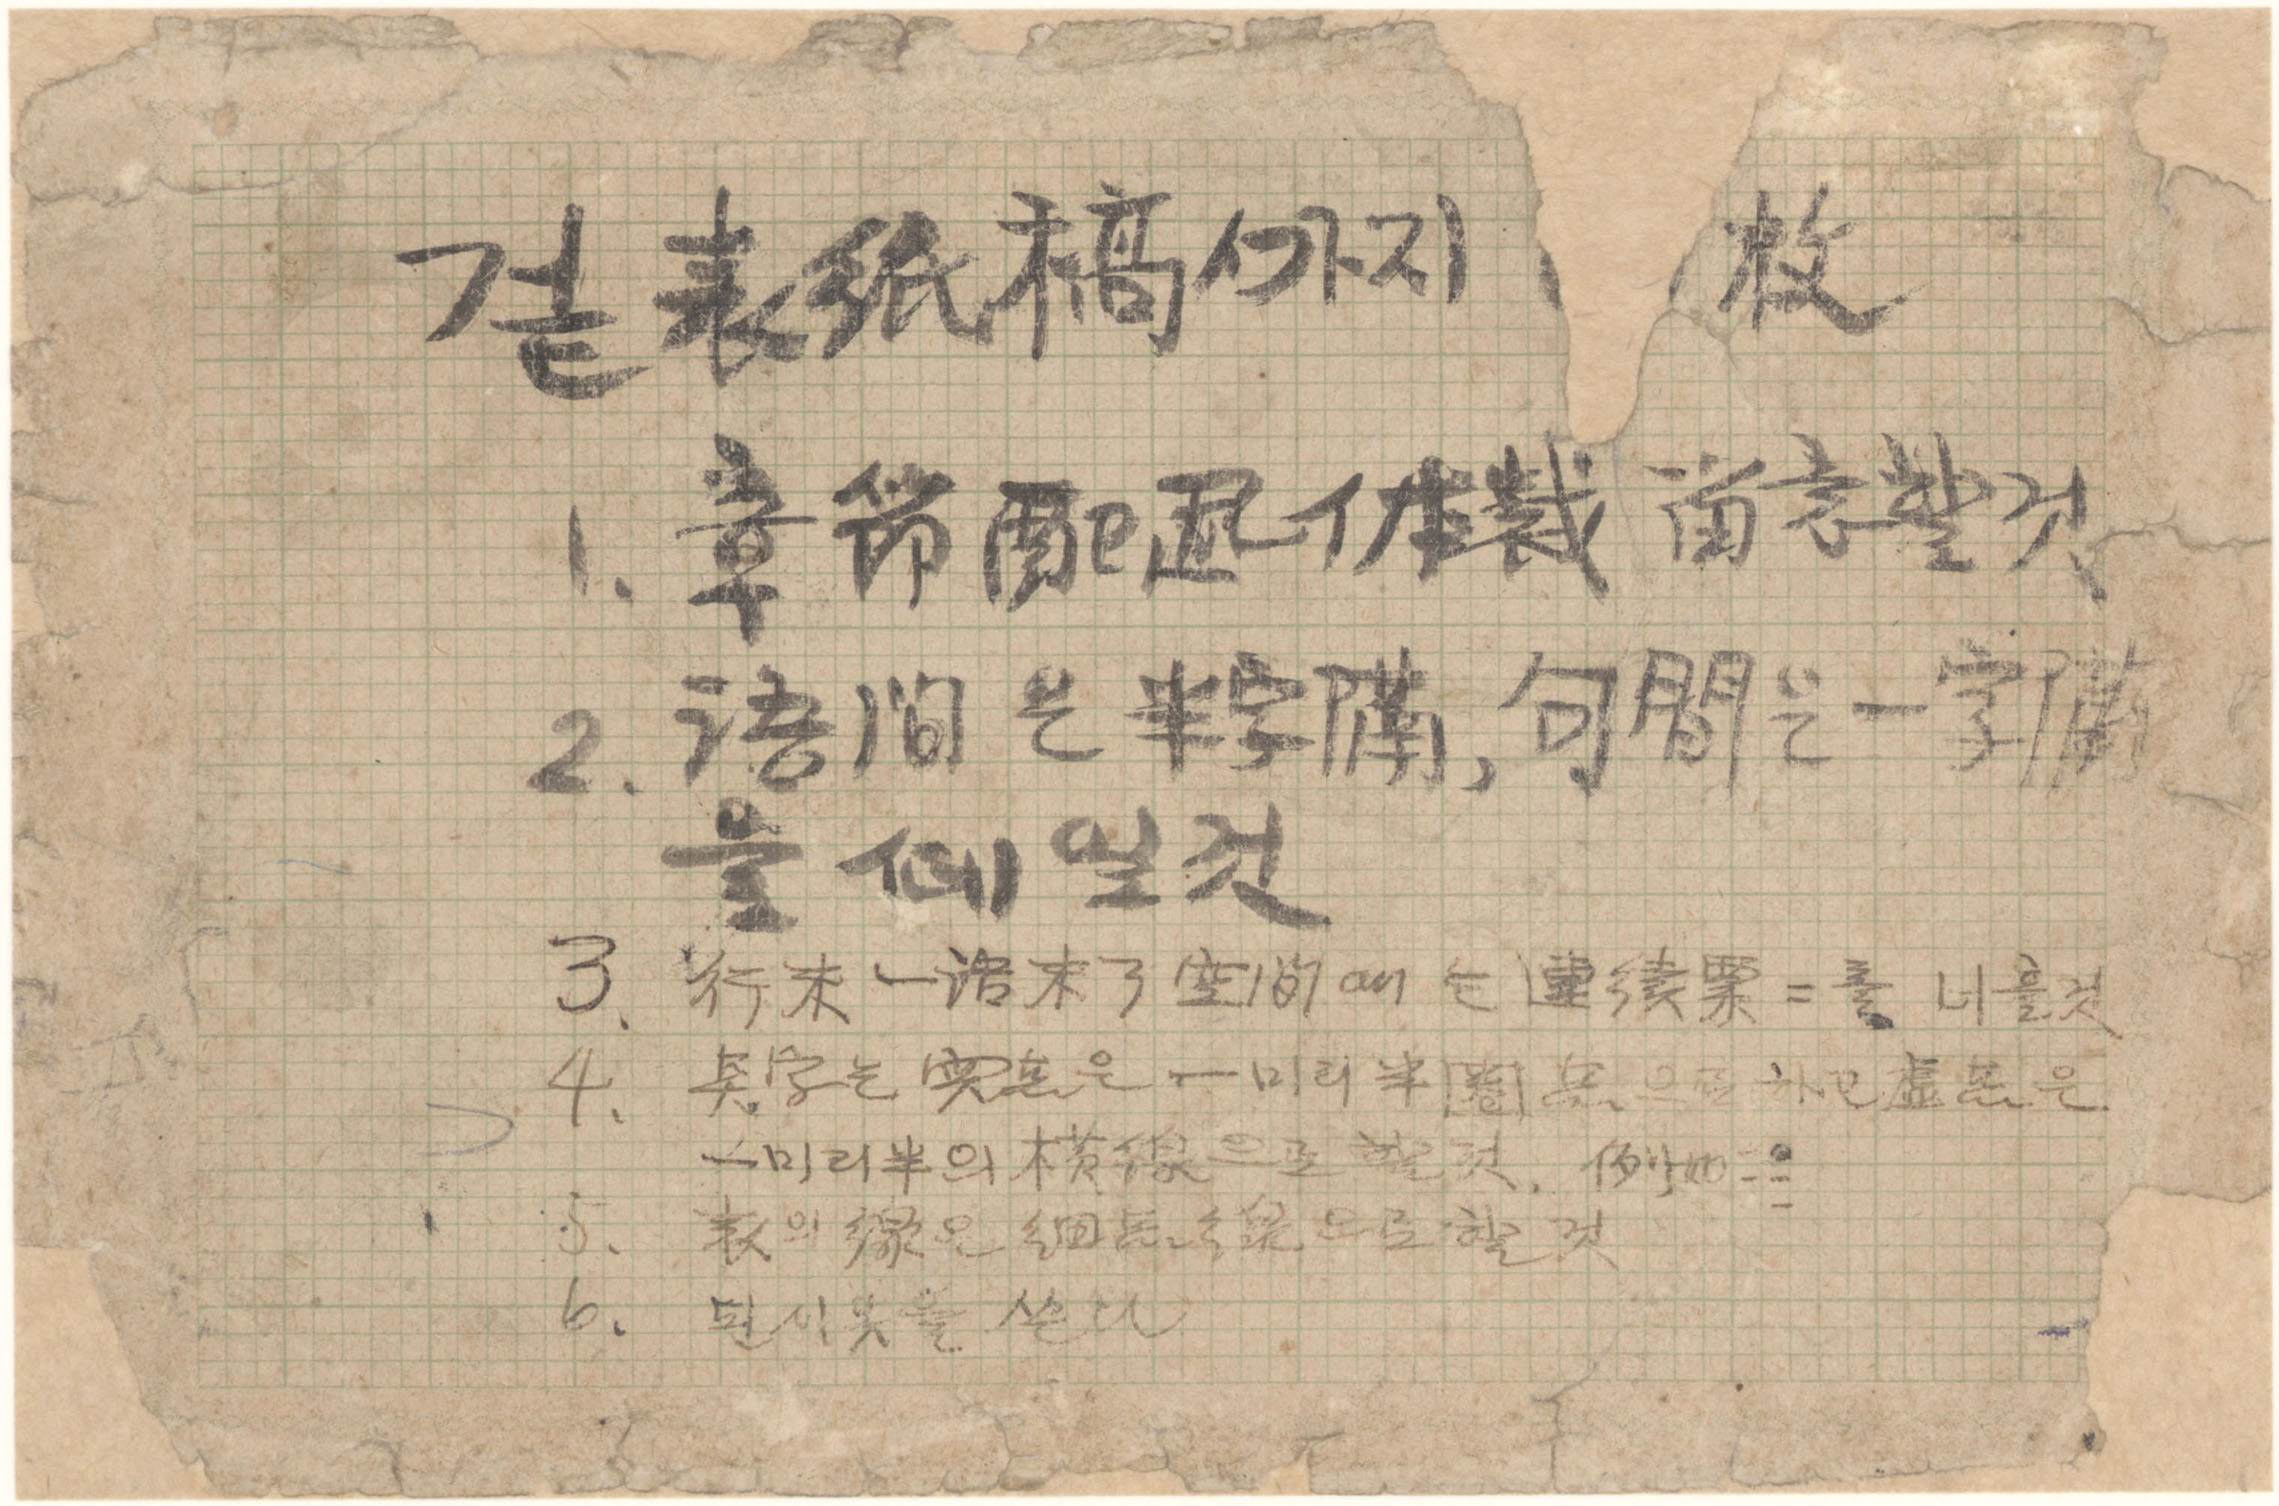 겉表紙稿ᄭᅡ지 枚
1. 章節配置体裁 留意할 것
2. 語間은 半字隔, 句間은 一字隔
을 ᄯᅦ일 것
3. 行末一語末了空間에는 連續票=를 너흘 것
4. 点字는 実点은 一미리半 圈点으로 하고 虛点은
一미리半의 横線으로 할 것. 例如
5. 表의 線은 細点線으로 할 것
6. 된시옷을 쓴다